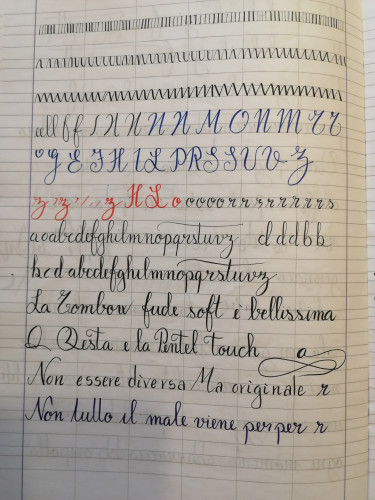 ell f f I N N N N M O N M Z Z
o g E F H I L P R S S U V Z
z z z z H L o o o o o r r z r r r r r s
a o a b c d e f g h i l m n o p q r s t u v z d d d b b
b c d a b c d e f g h i l m n o p q r s t u v z
La Tombow fude soft è bellissima
Q Qesta e la Pentel Touch a
Non essere diversa Ma originale r
Non tutto il male viene per per r